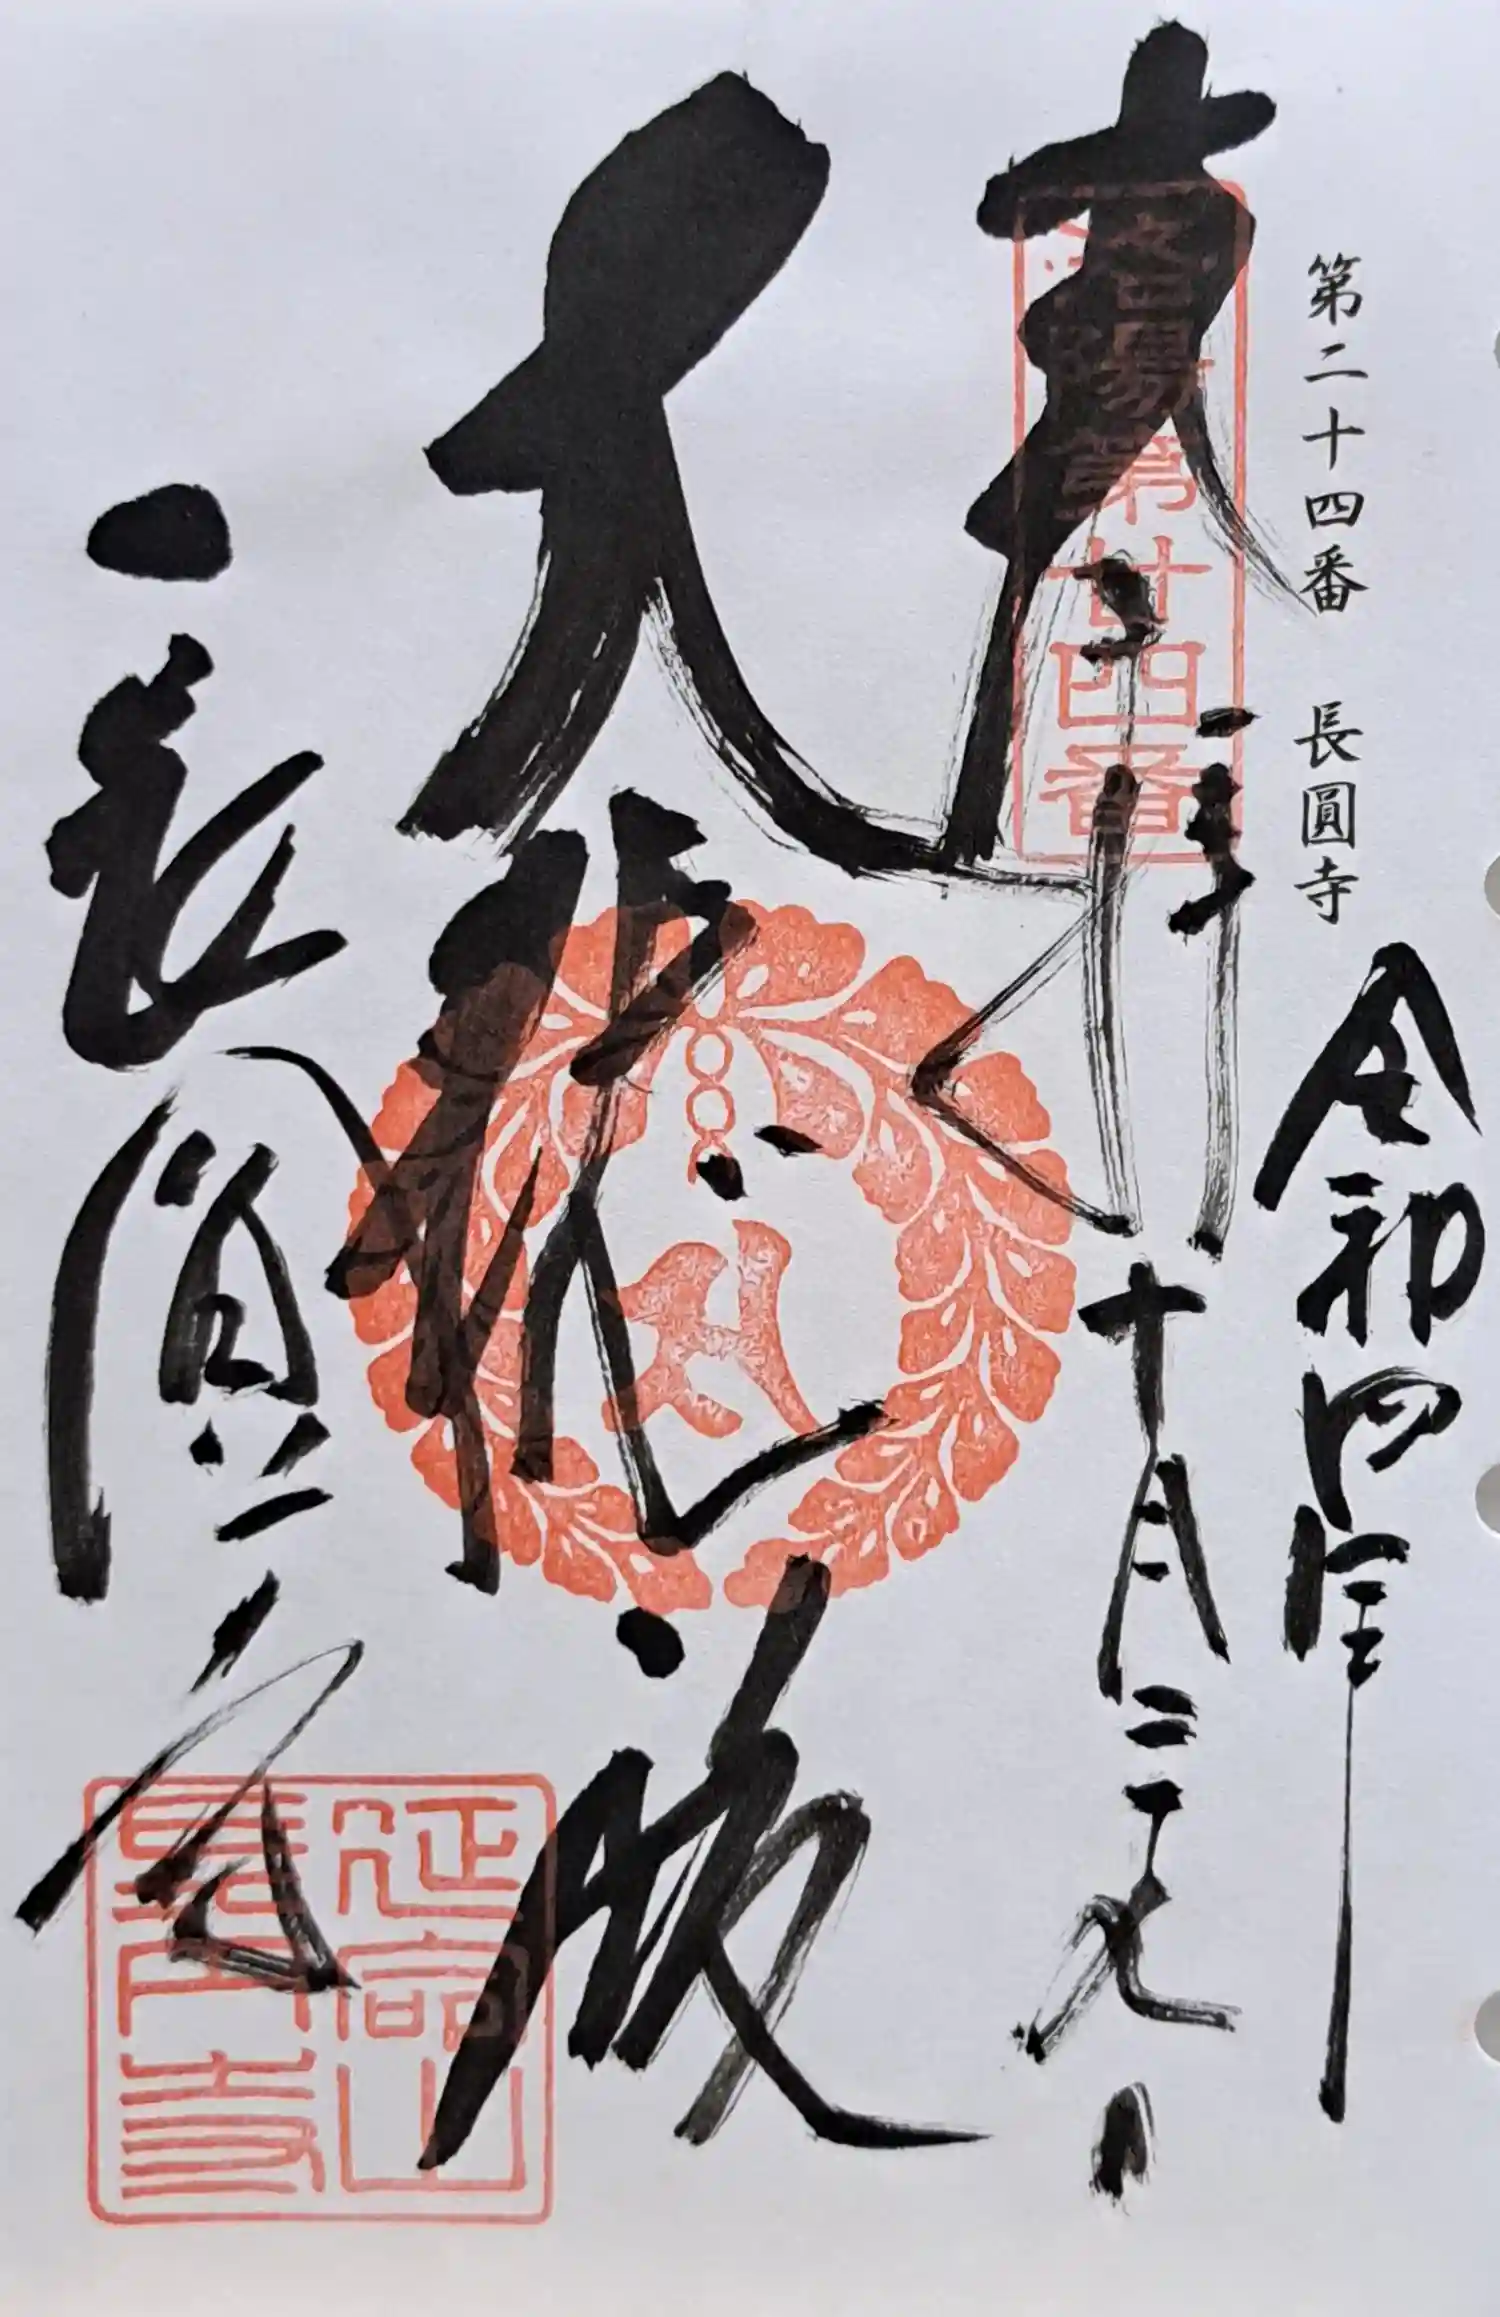 第二十四番 長圓寺
令和四年
十月二十九日
奉拝
洛陽第廿四番
大悲殿
長圓寺
延命山
長円寺